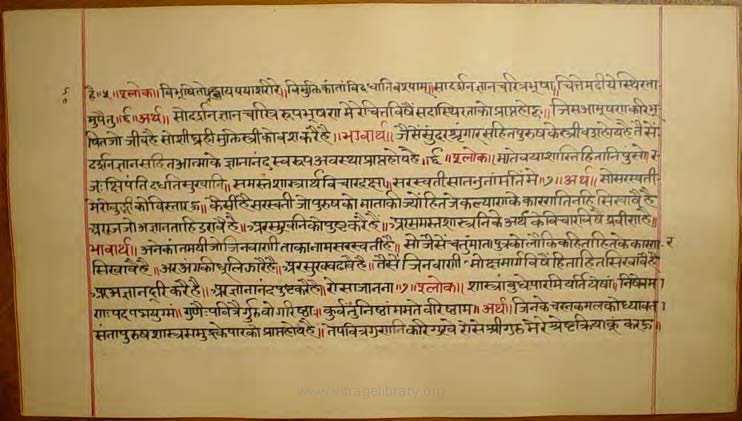 है॥५॥श्लोक॥विभूषितो
विमुक्तिकांतां विदधाति वश्याम्॥सा दर्शनज्ञानचरित्रभूषा॥चित्ते मदीये स्थिरता-
मुपैतु॥६॥अर्थ॥सो दर्शनज्ञानचारित्र रूप भूषण मेरे चित्त विषै सदा स्थिरता को प्राप्त होहु॥जिस आभूषण करि भू-
षित जो जीव है सो शीघ्र ही मुक्ति स्त्री को वश करै है॥भावार्थ॥जैसें सुंदर श्रृंगार सहित पुरुष कै स्त्री वश होय है तैसें
दर्शनज्ञान सहित आत्मा कै ज्ञानानंद स्वरूप अवस्था प्राप्त होय है॥६॥श्लोक॥मातेव या शास्ति हितानि पुंसो॥र-
जः क्षिपंति दधति सुखानि॥समस्तशास्त्रार्थविचारदक्षा॥सरस्वती सा तनुतां मतिं मे॥७॥अर्थ॥सो सरस्वती
मेरी बुद्धी को विस्तारऊ॥कैसी है सरस्वती जो पुरुष को माता की ज्यों हित जे कल्याण के कारण तिनहि सिखावै है
अर रज जो अज्ञान ताहि हरावै है॥अर सुखनि को पुष्ट करै है॥अर समस्त शास्त्रनिके अर्थ के विचार विषै प्रवीण है॥
भावार्थ॥अनेकांतमयी जो जिनवाणी ता का नाम सरस्वती है॥सो जैसें चतुर माता पुत्र को लौकिक हिताहित के कारण
सिखावै है॥अर अंग की धूलि झारै है॥अर सुख बढावै है॥तैसें जिनवाणी मोक्षमार्ग विषै हिताहित सिखावै है
अर अज्ञान दूरि करै है॥अर ज्ञानानंद पुष्ट करै है॥ऐसा जानना॥७॥श्लोक॥शास्त्रांबुधेः पारमियर्ति येषां॥निषेवमा
णः पदपद्मयुग्मं॥गुणैः पवित्रैर्गुरवो गरिष्ठाः॥कुर्वंतु निष्ठां मम ते वरिष्ठाम्॥अर्थ॥जिनके चरनकमल को ध्यावत
संता पुरुष शास्त्र समुद्र के पार को प्राप्त होय है॥ते पवित्र गुणनि करि गुरुवे ऐसे श्रीगुरु मेरे श्रेष्ठ क्रिया कूं करऊ॥
www.vitragelibrary.org